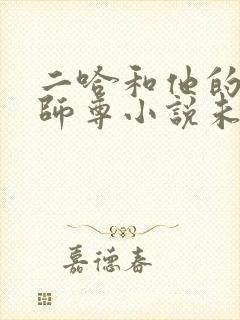 二哈和他的
師尊小說未
嘉德春